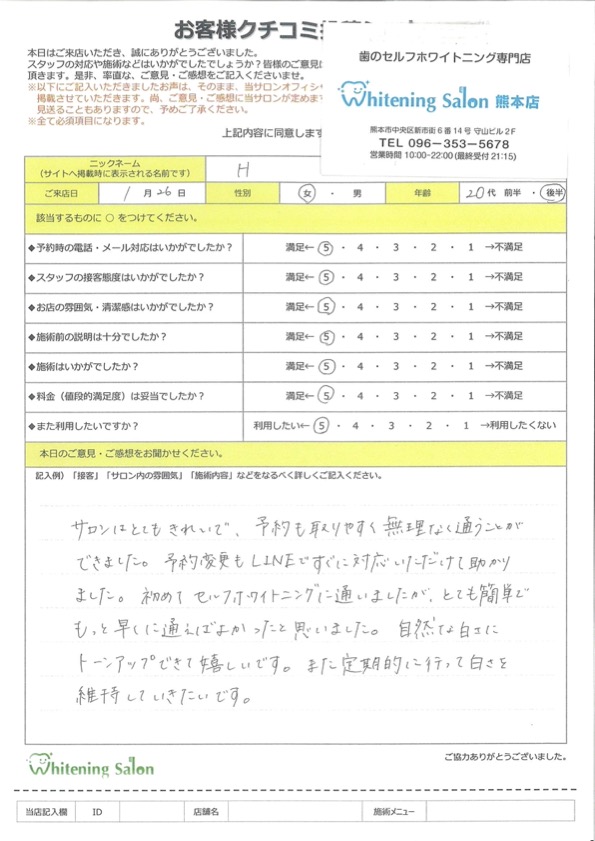 お客様クチコミ
本日はご来店いただき、誠にありがとうございました。
スタッフの対応や施術などはいかがでしたでしょうか？皆様のご意見
頂きます。是非、率直な、ご意見・ご感想をご記入くださいませ。
※以下にご記入いただきましたお声は、そのまま、当サロンオフィシ
掲載させていただきます。尚、ご意見・ご感想に当サロンが定めます
見送ることもありますので、予めご了承ください。
※全て必須項目になります。
上記内容に同意します
歯のセルフホワイトニング専門店
Whitening Salon 熊本店
熊本市中央区新市街6番14号 守山ビル2F
TEL 096-353-5678
営業時間 10:00-22:00 (最終受付 21:15)
ニックネーム
(サイトへ掲載時に表示される名前です) H
ご来店日 1月26日 性別 女 ・ 男 年齢 20代 前半 ・ 後半
該当するものに ○ をつけてください。
◆予約時の電話・メール対応はいかがでしたか？ 満足← 5 ・ 4 ・ 3 ・ 2 ・ 1 →不満足
◆スタッフの接客態度はいかがでしたか？ 満足← 5 ・ 4 ・ 3 ・ 2 ・ 1 →不満足
◆お店の雰囲気・清潔感はいかがでしたか？ 満足← 5 ・ 4 ・ 3 ・ 2 ・ 1 →不満足
◆施術前の説明は十分でしたか？ 満足← 5 ・ 4 ・ 3 ・ 2 ・ 1 →不満足
◆施術はいかがでしたか？ 満足← 5 ・ 4 ・ 3 ・ 2 ・ 1 →不満足
◆料金（値段的満足度）は妥当でしたか？ 満足← 5 ・ 4 ・ 3 ・ 2 ・ 1 →不満足
◆また利用したいですか？ 利用したい← 5 ・ 4 ・ 3 ・ 2 ・ 1 →利用したくない
本日のご意見・ご感想をお聞かせください。
記入例）「接客」「サロン内の雰囲気」「施術内容」などをなるべく詳しくご記入ください。
サロンはとてもきれいで、予約も取りやすく無理なく通うことが
できました。予約変更もLINEですぐに対応いただけて助かり
ました。初めてセルフホワイトニングに通いましたが、とても簡単で
もっと早くに通えばよかったと思いました。自然な白さに
トーンアップできて嬉しいです。また定期的に行って白さを
維持していきたいです。
Whitening Salon
ご協力ありがとうございました。
当店記入欄 ID 店舗名 施術メニュー